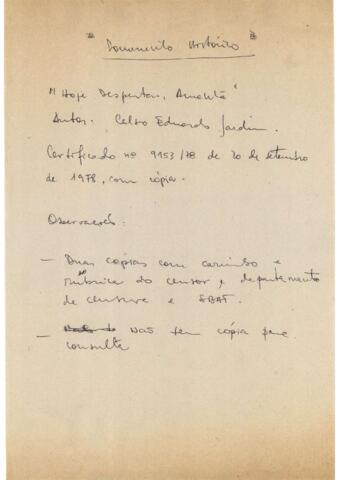 " Documento Histórico "
" Hoje Despertar, Amanhã "
Autor. Celso Eduardo Jardim.
Certificado nº 9953/78 de 20 de setembro
de 1978, com cópia.
Observações.
— Duas cópias com carimbo e
rubrica do censor e departamento
de censura e SBAT.
— Não tem cópia para
consulta